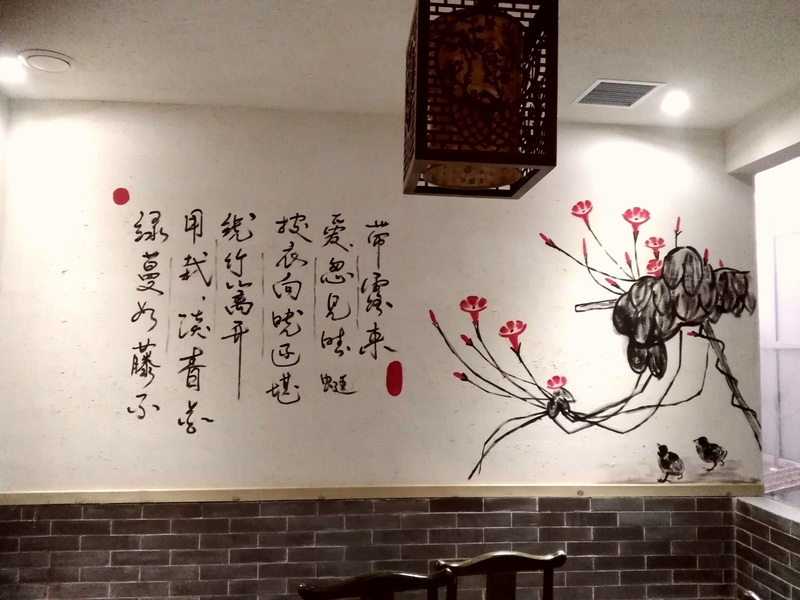 绿蔓如藤不
用栽，淡青花
绕竹篱开
披衣向晓还堪
爱忽见晴蜓
带露来